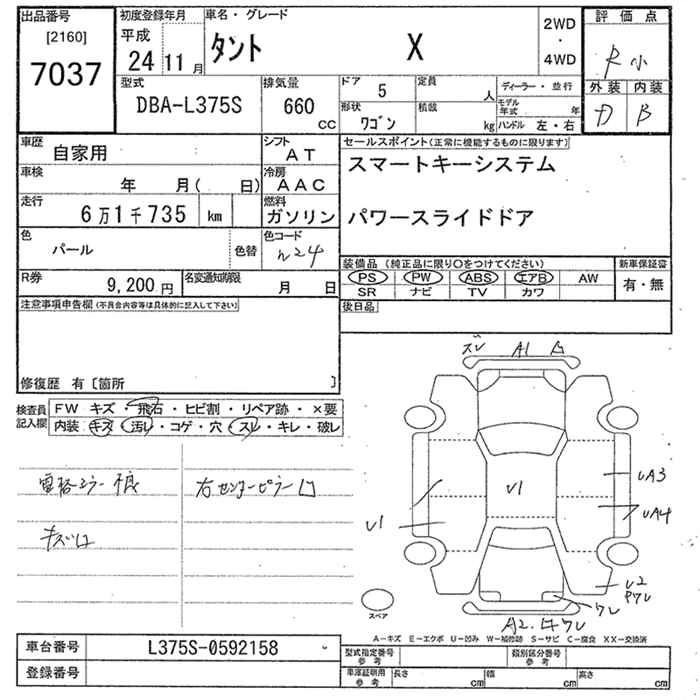 出品番号
[2160]
7037
初度登録年月
平成
24 11 月
車名・グレード
タント X
2WD
・
4WD
評価点
R 小
外装 内装
D B
型式
DBA-L375S
排気量
660
CC
ドア 5
形状
ワゴン
定員
人
積載
kg
ディーラー・並行
モデル年式 年
ハンドル 左・右
車歴
自家用
シフト
AT
車検
年 月( 日)
冷房
AAC
走行
6万1千735 km
燃料
ガソリン
色
パール
色替
色コード
R券
9,200円
名変通知期限
月 日
セールスポイント(正常に機能するものに限ります)
スマートキーシステム
パワースライドドア
装備品(純正品に限り○をつけてください)
新車保証書
PS PW ABS エアB AW
SR ナビ TV カワ
有・無
後日品
注意事項申告欄(不具合内容等は具体的に記入して下さい)
修復歴 有〔箇所 〕
検査員記入欄
FW キズ・飛石・ヒビ割・リペア跡・×要
内装:キズ・汚レ・コゲ・穴・スレ・キレ・破レ
電格ミラー
右センターピラー
キズ凹
ズレ A1
U1
U1
UA3
UA4
U2
ワレ
A2
スペア
A-キズ E-エクボ U-凹み W-補修跡 S-サビ C-腐食 XX-交換済
車台番号
L375S-0592158
登録番号
型式指定番号 参考
類別区分番号 参考
車庫証明用 参考
長さ cm
幅 cm
高さ cm